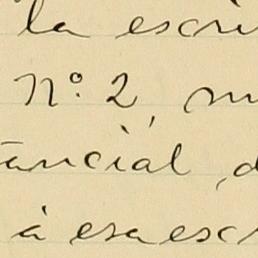 la escri
Nº. 2, m
tancial, d
à esa esc